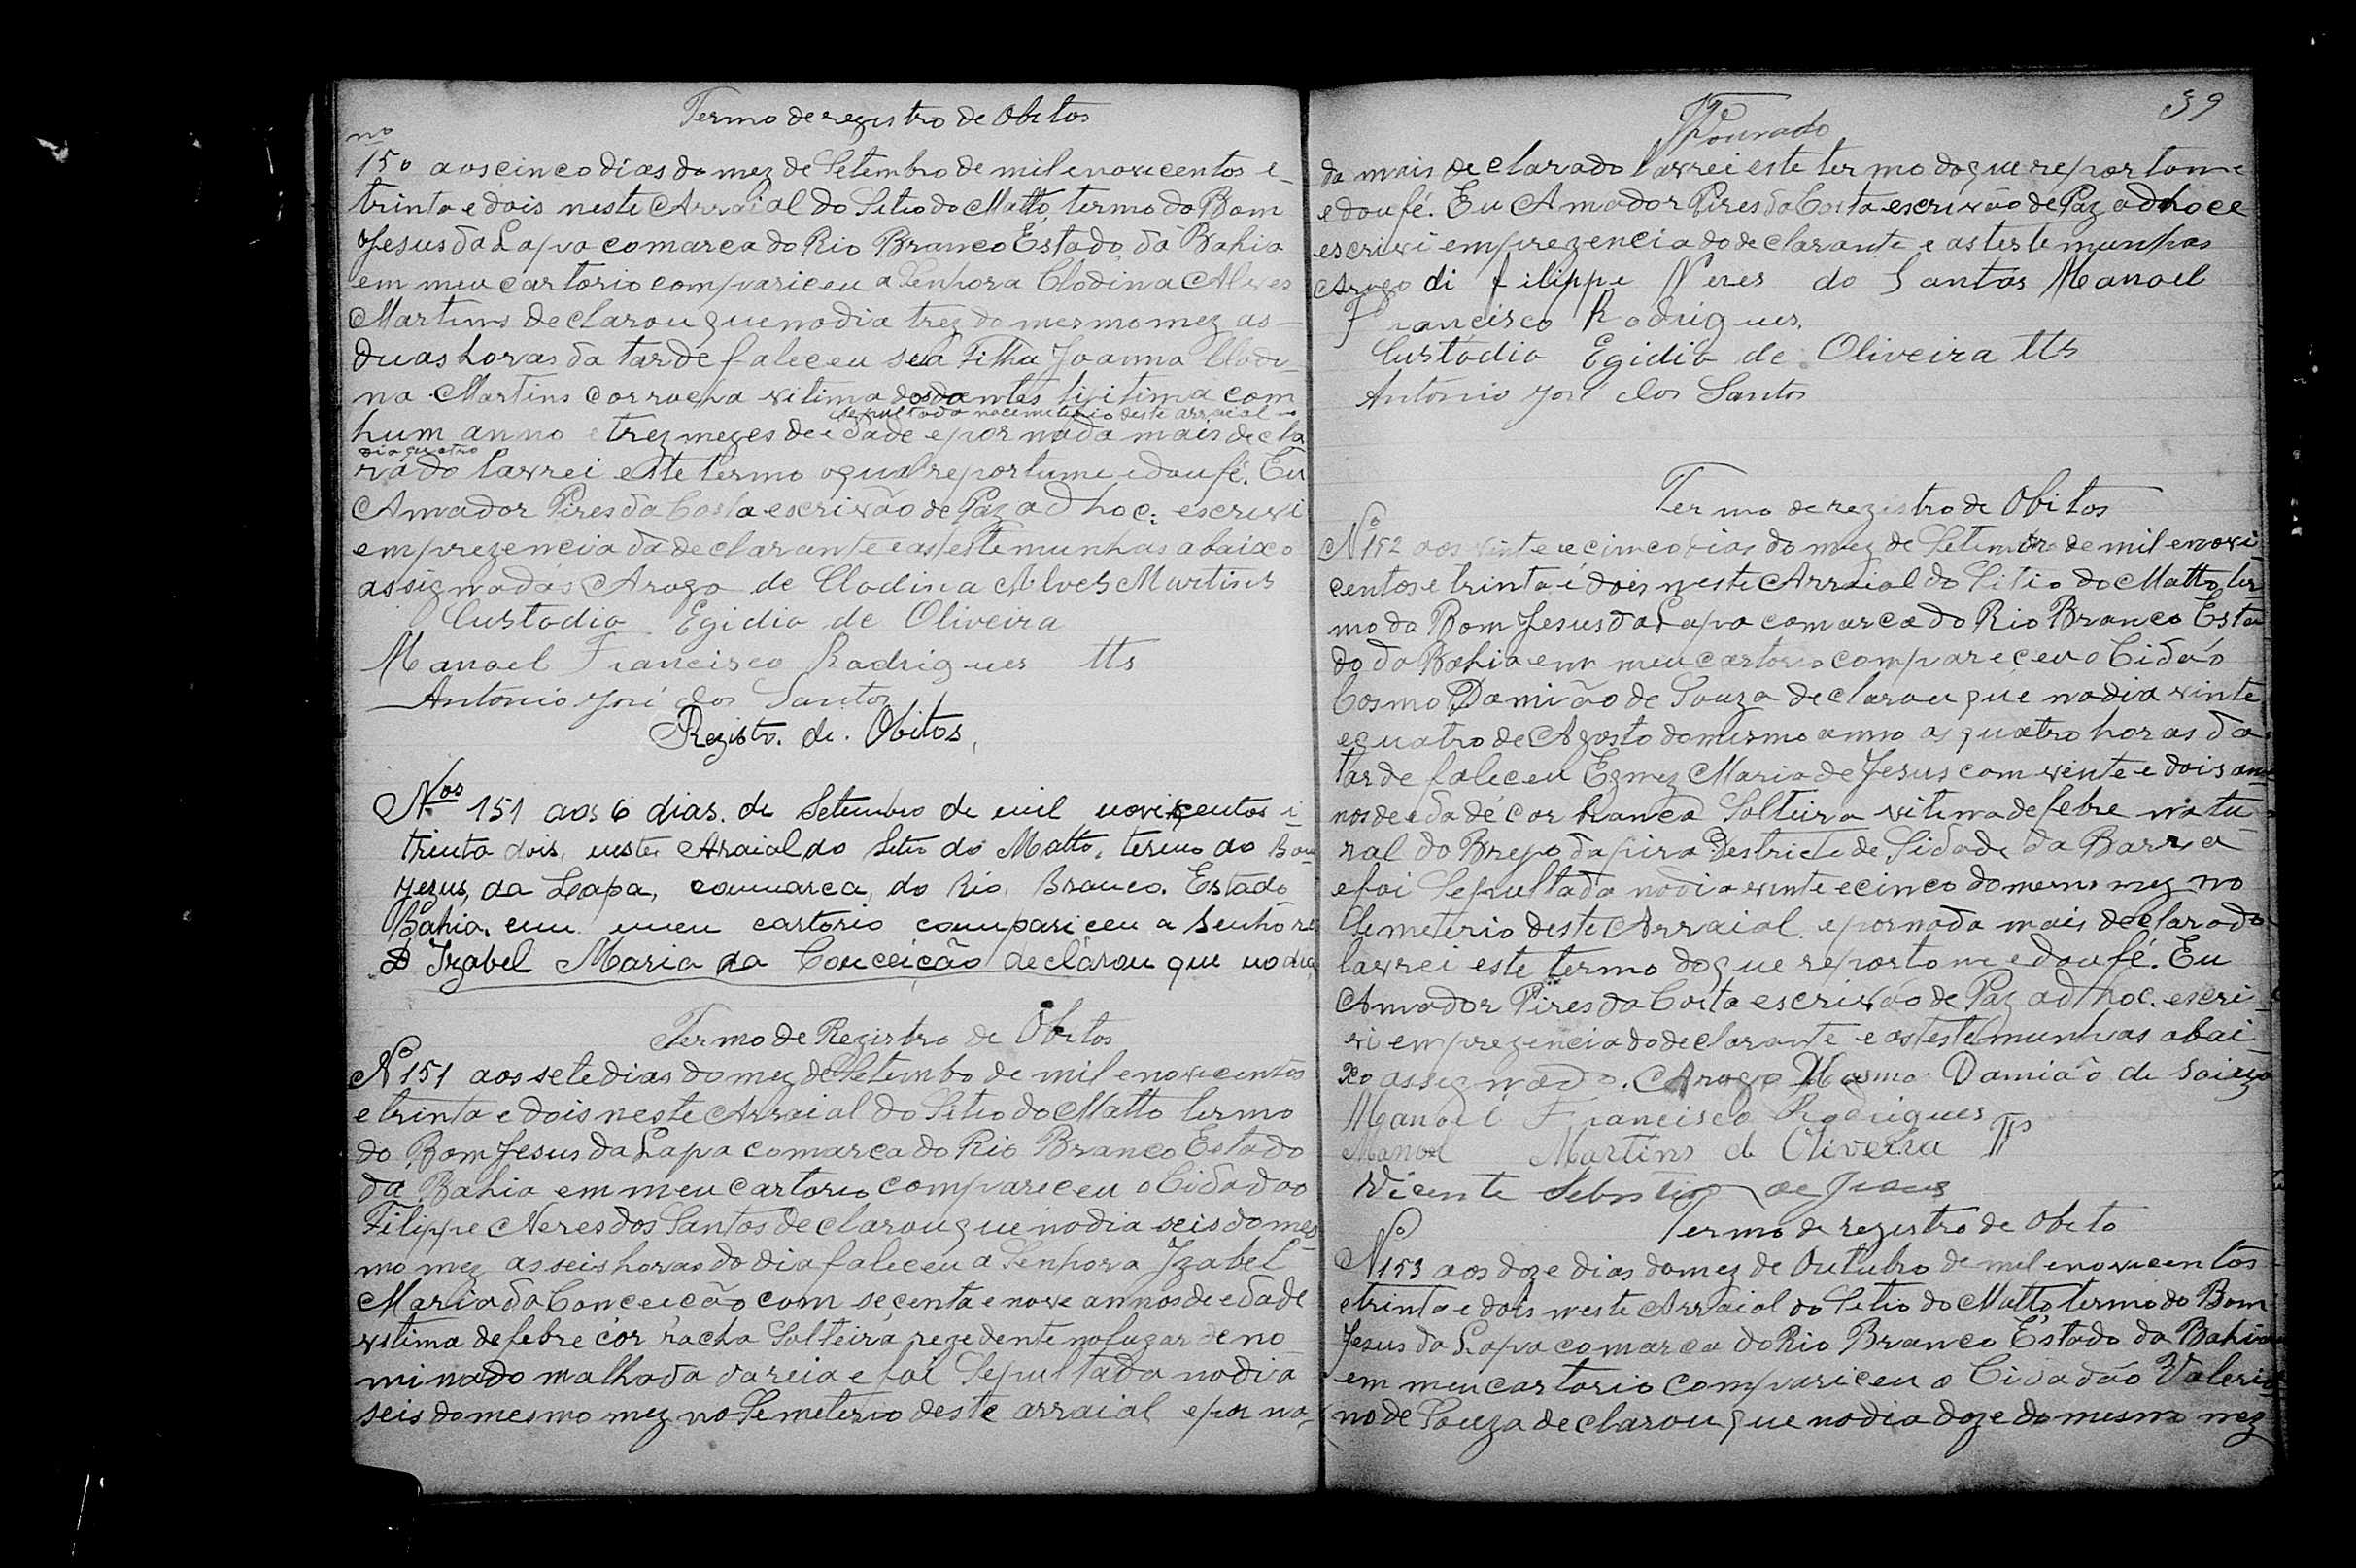 Termo de registro de Obitos
nº
150 aos cinco dias do mez de Setembro de mil e novecentos e
trinta e dois neste Arraial do Sitio do Matto, termo do Bom
Jesus da Lapa comarca do Rio Branco Estado da Bahia
em meu cartorio compariceu a Senhora Clodina Alves
Martins declarou que no dia trez do mesmo mez as
duas horas da tarde faleceu sua Filha Joanna Clodi-
na Martins cor racha vitima dos dentes ligitima com
sepultada no cemeterio deste arraial no
hum anno e trez mezes de edade e por nada mais decla
dia quatro
rado lavrei este termo o qual reportume e dou fé. Eu
Amador Pires da Costa escrivão de Paz ad hoc: escrivi
em prezencia da declarante e as testemunhas abaixo
assignadas Arogo de Clodina Alves Martins
Custodio Egidio de Oliveira
Manoel Francisco Rodrigues tts
Antonio José dos Santos
Registo. de. Obitos,
Nos 151 aos 6 dias. de Setembro de mil novicentos i
trinta dois, neste Araial do Sitio do Matto, termo do Bom
Jezus, da Lapa, commarca, do Rio, Branco. Estado
Bahia. em meu cartorio compariceu a Senhora
D Izabel Maria da Conceição declarou que no dia,
Termo de Registro de Obitos
Nº 151 aos sete dias do mez de Setembo de mil e novecentos
e trinta e dois neste Arraial do Sitio do Matto termo
do Bom Jesus da Lapa comarca do Rio Branco Estado
da Bahia em meu cartorio compariceu o Cidadao
Filippe Neres dos Santos declarou que no dia seis do mes-
mo mez as seis horas do dia faleceu a Senhora Izabel
Maria da Conceicão com secenta e nove annos de edade
vitima de febre côr racha Solteira rezedente no lugar deno
minado malhada dareia e foi Sepultada no dia
seis do mesmo mez no Semeterio deste arraial e por na-
39
Pourado
da mais declarado lavrei este termo do que reportome
e dou fé. Eu Amador Pires da Costa escrivão de Paz ad hoce
escrivi em prezencia do declarante e as testemunhas
Arogo di filippe Neres do Santos Manoel
Francisco Rodrigues.
Custódio Egidio de Oliveira tts
Antonio José dos Santos
Termo de registro de Obitos
Nº 152 aos vinte e cinco dias do mez de Setembro de mil e novi
centos e trinta e dois neste Arraial do Sitio do Matto, ter
mo do Bom Jesus da Lapa comarca do Rio Branco Esta
do da Bahia em meu cartorio compareceu o Cidão
Cosmo Damião de Souza declarou que no dia vinte
e cuatro de Agosto do mesmo anno as quatro horas da
tarde faleceu Ezmez Maria de Jesus com vinte e dois an
nos de edadé cor branca Solteira vitima de febre natu
ral do Brejo da pira Destricto de Sidade da Barra
e foi Sepultada no dia vinte e cinco do mesmo mez no
Semeterio deste Arraial. e por nada mais declarado
lavrei este termo do que reportome e dou fé. Eu
Amador Pires da Costa escrivão de Paz ad hoc. escri
vi em prezencia do declarante e as testemunhas abai
xo assignado. Arogo Cosmo Damião de Soiuza
Manoel Francisco Rodrigues
Manoel Martins de Oliveira tts
Vicente de Jesus
Termo de registro de Obeto
Nº 153 aos doze dias do mez de Outubro de mil e novecentos
e trinta e dois neste Arraial do Sitio do Matto termo do Bom
Jesus da Lapa comarca do Rio Branco Estado da Bahia
em meu cartorio compariceu o Cidadão Valeria
no de Souza declarou que no dia doze do mesmo mez